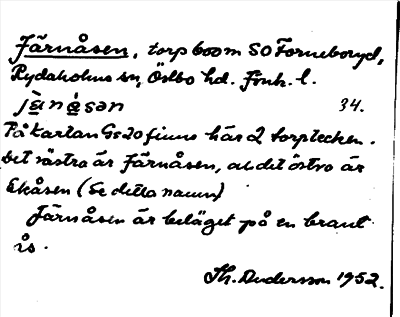 Järnåsen, torp 600 m SO Forneboryd,
Rydaholms sn, Östbo hd. Jönk. l.
jä̀nå̀sən 34.
På kartan Gs20 finns här 2 torptecken.
Det västra är Järnåsen, al det östra är
Ekåsen (se detta namn)
Järnåsen är beläget på en brant
ås.
Th. Andersson 1952.